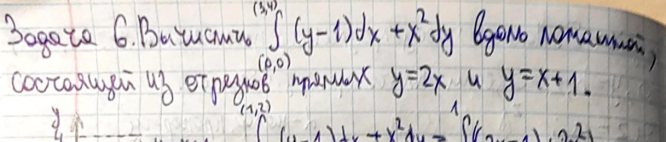 (3,4)
Задача 6. Вычислить ∫ (y-1)dx + x²dy вдоль ломанной,
(0,0)
состоящей из отрезков прямых y=2x и y=x+1.
(1,2) 1
y ∫ (y-1)dx + x²dy = ∫((2x-1)+2x²)